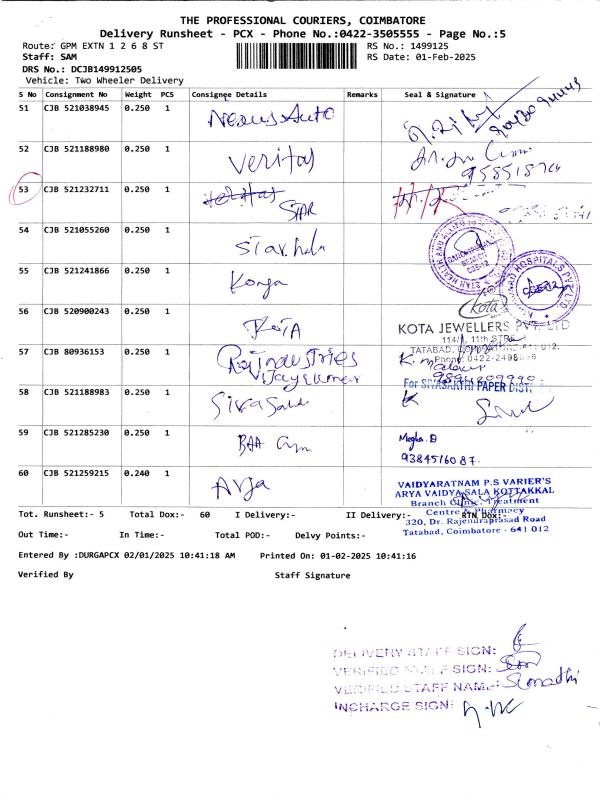 THE PROFESSIONAL COURIERS, COIMBATORE
Delivery Runsheet - PCX - Phone No.:0422-3505555 - Page No.:5
Route: GPM EXTN 1 2 6 8 ST RS No.: 1499125
Staff: SAM RS Date: 01-Feb-2025
DRS No.: DCJB149912505
Vehicle: Two Wheeler Delivery
S No Consignment No Weight PCS Consignee Details Remarks Seal & Signature
51 CJB 521038945 0.250 1 Nexus Auto
52 CJB 521188980 0.250 1 Veritas
53 CJB 521232711 0.250 1 Veritas
STAR
54 CJB 521055260 0.250 1 Star
55 CJB 521241866 0.250 1 Konga
56 CJB 520900243 0.250 1 KOTA
Kota
KOTA JEWELLERS PVT. LTD
114/1, 11th
TATABAD,
Phone: 0422-2498
57 CJB 80936153 0.250 1 Raj industries
Vijaykumar
For SIVASAKTHI PAPER DIST.
58 CJB 521188983 0.250 1 Siva
59 CJB 521285230 0.250 1 Megha. D
9384516087.
60 CJB 521259215 0.240 1 Arya
VAIDYARATNAM P.S VARIER'S
ARYA VAIDYA SALA KOTTAKKAL
Branch Clinic, Treatment
Centre & Pharmacy
320, Dr. Rajendraprasad Road
Tatabad, Coimbatore - 641 012
Tot. Runsheet:- 5 Total Dox:- 60 I Delivery:- II Delivery:- RTN Dox:-
Out Time:- In Time:- Total POD:- Delvy Points:-
Entered By :DURGAPCX 02/01/2025 10:41:18 AM Printed On: 01-02-2025 10:41:16
Verified By Staff Signature
DELIVERY STAFF SIGN:
VERIFIED STAFF SIGN:
VERIFIED STAFF NAME:
INCHARGE SIGN: